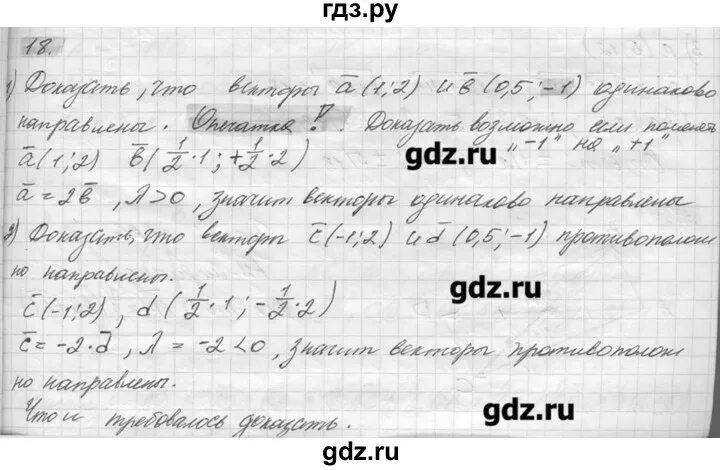 гдз.ру
18.
1) Доказать, что векторы a̅(1;2) и b̅(0,5;-1) одинаково
направлены. Опечатка! Доказать возможно если поменять
„-1" на „+1"
a̅(1;2) b̅(1/2·1;+1/2·2)
gdz.ru
a̅=2b̅, λ>0, значит векторы одинаково направлены
2) Доказать, что векторы c̅(-1;2) и d̅(0,5;-1) противополож
но направлены.
gdz.ru
c̅(-1;2), d(1/2·1;-1/2·2)
c̅=-2·d̅, λ=-2<0, значит векторы противополож
но направлены.
gdz.ru
Что и требовалось доказать.
гдз.ру